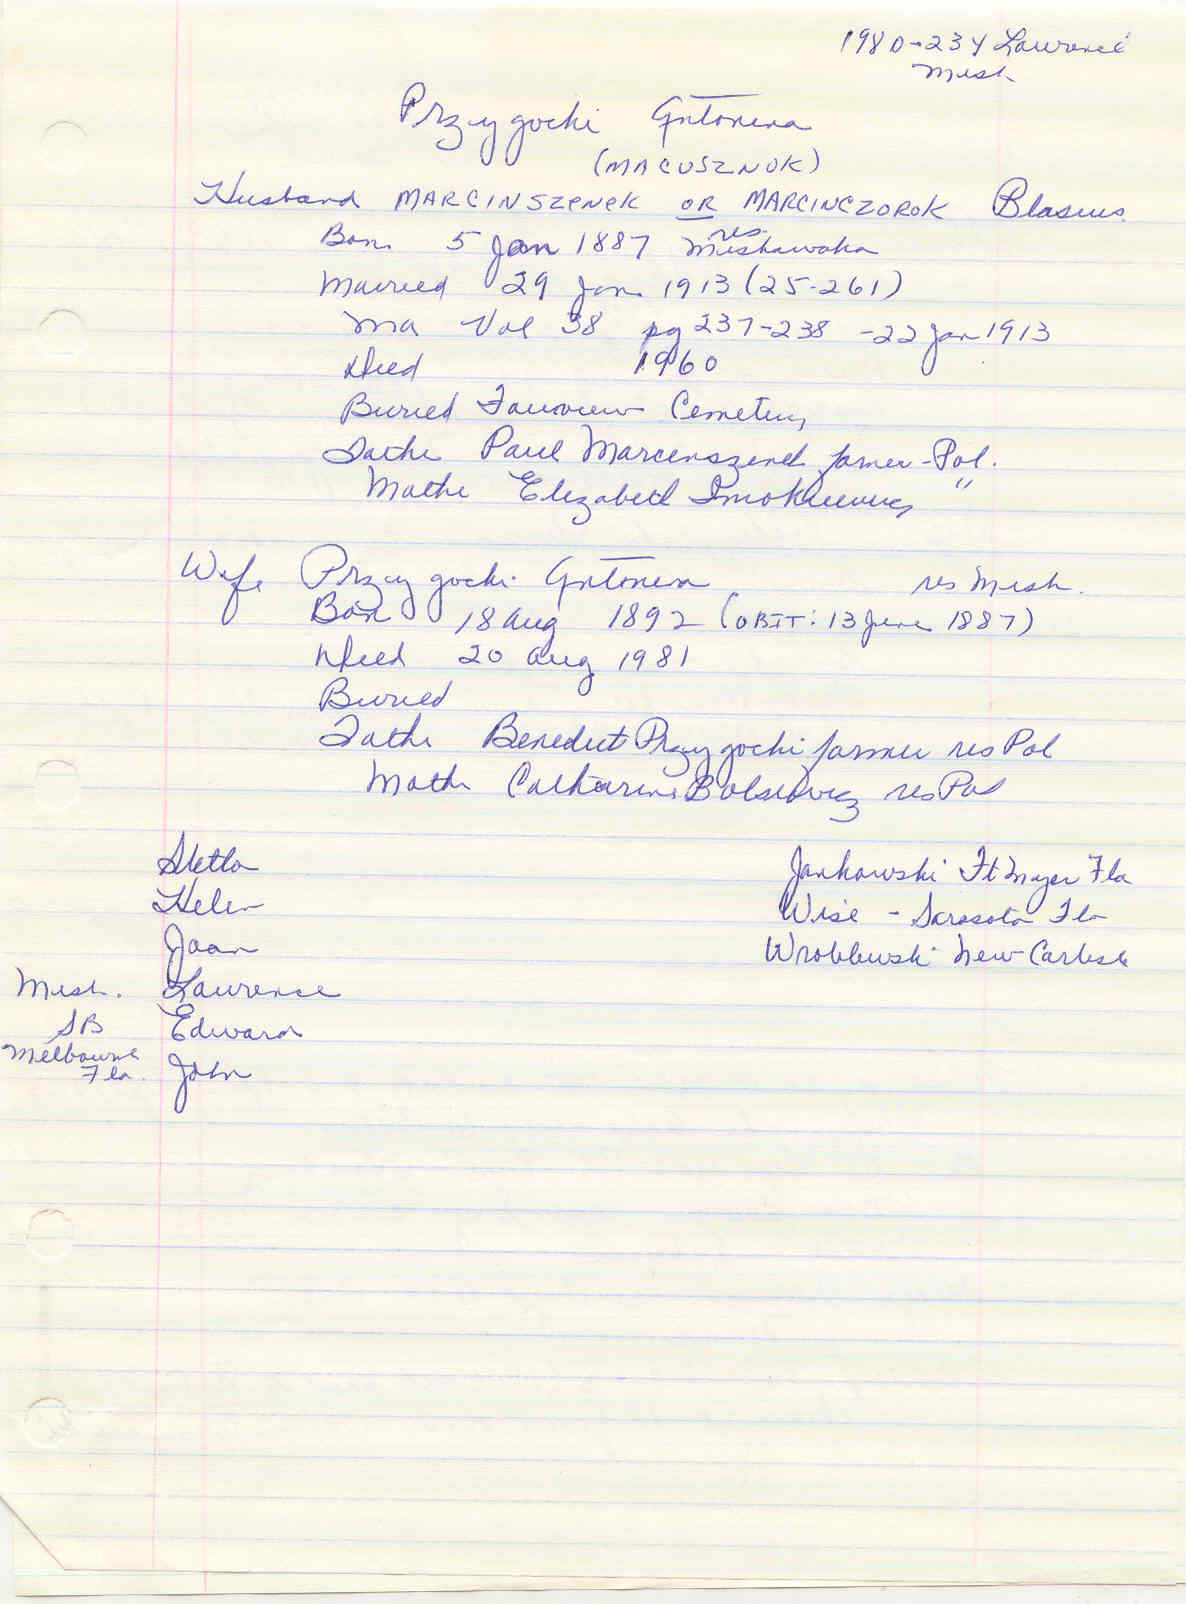 1980-234 Lawrence
Mish
Przygocki Antonina
(MACUSZNOK)
Husband MARCINSZENEK OR MARCINCZOROK Blasius
res.
Born 5 Jan 1887 Mishawaka
Married 29 Jan 1913 (25-261)
Ma Vol 38 pg 237-238 -22 Jan 1913
Died 1960
Buried Fairview Cemetery
Father Paul Marcenszenek farmer-Pol.
Mother Elizabeth "
Wife Przygocki Antonina res Mish.
Born 18 Aug 1892 (OBIT: 13 June 1887)
Died 20 Aug 1981
Buried
Father Benedict Przygocki farmer res Pol
Mother Catharine res Pol
Stella Jankowski Ft Myer Fla
Helen Wise - Sarasota Fla
Joan Wroblewski New Carlisle
Mish. Lawrence
SB Edward
Melbourne
Fla. John